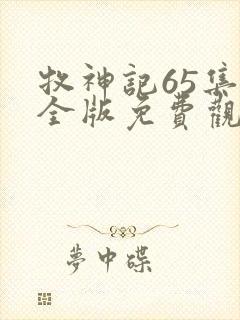 牧神記65集
全版免費觀
夢中碟